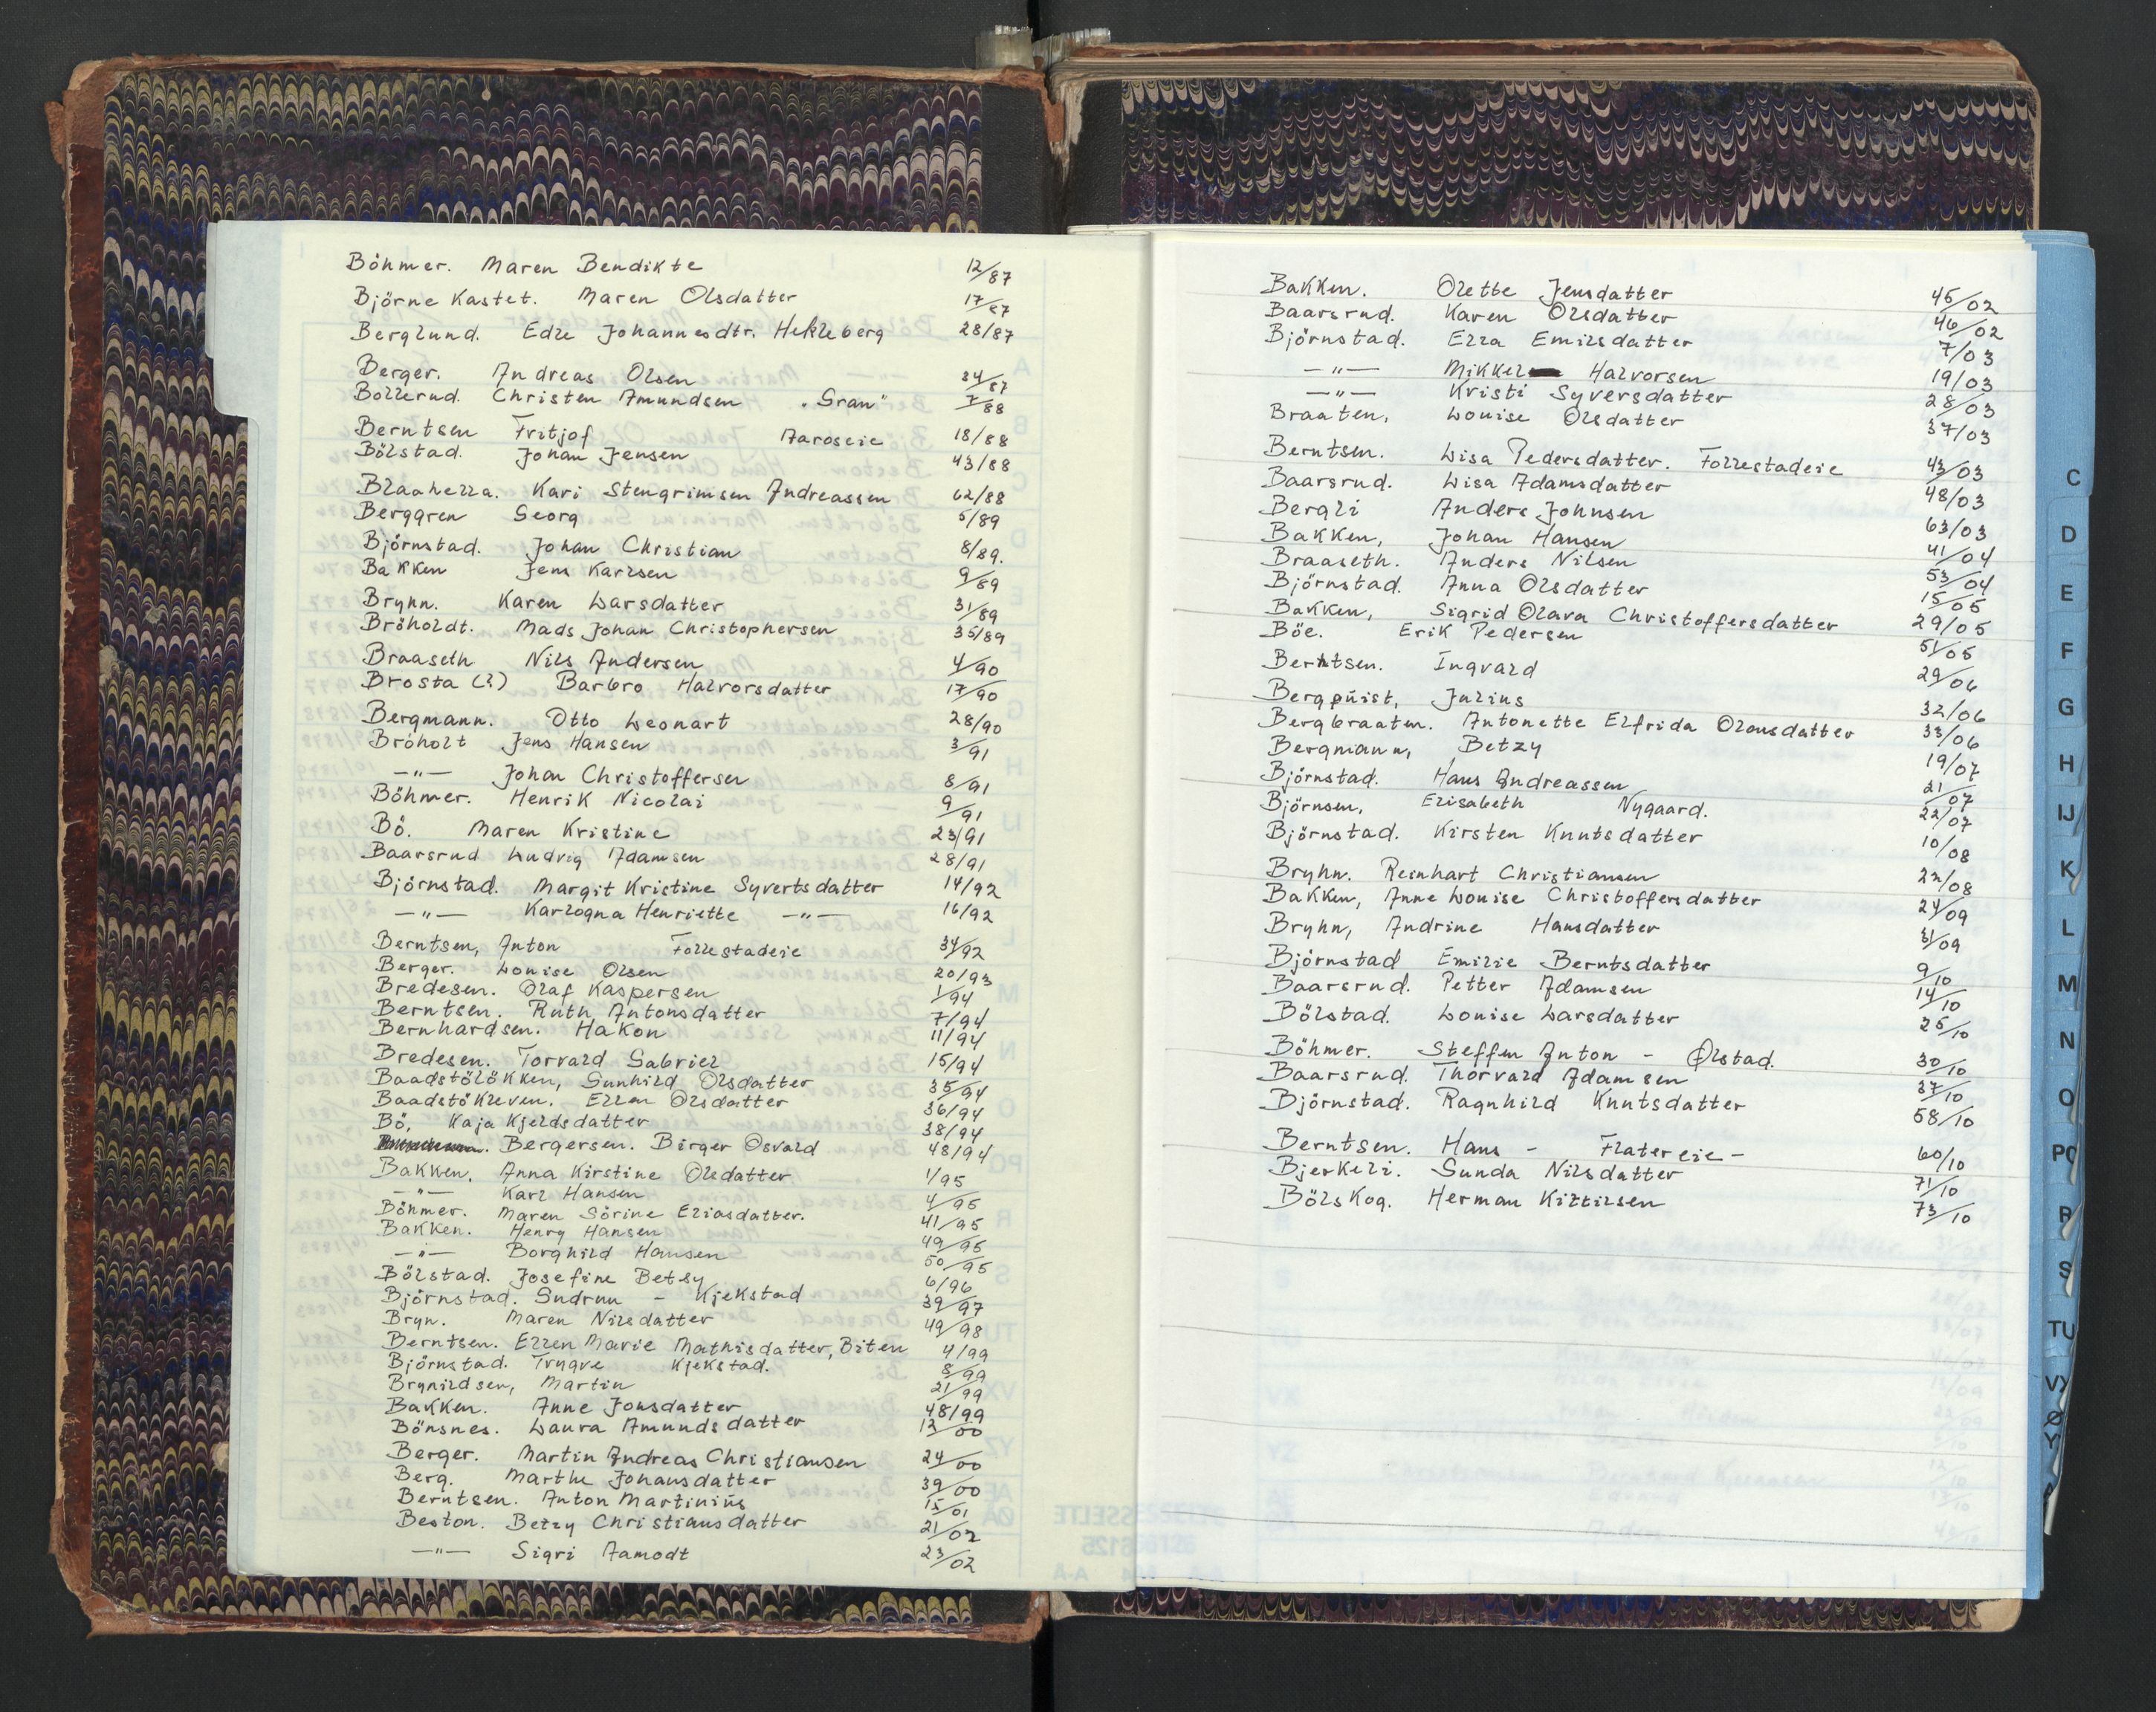 Böhmer. Maren Bendikte 12/87
Björne Kastet. Maren Olsdatter 17/87
Berglund. Edle Johannesdtr. Hekleberg 28/87
Berger. Andreas Olsen 34/87
Bollerud. Christen Amundsen "Gran" 7/88
Berntsen Fritjof Aaroseie 18/88
Bölstad. Johan Jensen 43/88
Blaahella. Kari Stengrimsen Andreassen 62/88
Berggren Georg 5/89
Björnstad. Johan Christian 8/89.
Bakken Jens Karlsen 9/89
Bryhn. Karen Larsdatter 31/89
Bröholdt. Mads Johan Christophersen 35/89
Braaseth Nils Andersen 4/90
Brosta (?) Barbro Halvorsdatter 17/90
Bergmann. Otto Leonart 28/90
Bröholt Jens Hansen 3/91
—"— Johan Christoffersen 8/91
Böhmer. Henrik Nicolai 9/91
Bö. Maren Kristine 23/91
Baarsrud Ludvig Adamsen 28/91
Björnstad. Margit Kristine Syvertsdatter 14/92
—"— Karlogna Henriette —"— 16/92
Berntsen, Anton Follestadeie 34/92
Berger. Louise Olsen 20/93
Bredesen. Olaf Kaspersen 1/94
Berntsen. Ruth Antonsdatter 7/94
Bernhardsen. Hakon 11/94
Bredesen. Torvald Gabriel 15/94
Baadstölökken, Gunhild Olsdatter 35/94
Baadstökleven. Ellen Olsdatter 36/94
Bö, Kaja Kjeldsdatter 38/94
Bergersen. Birger Osvald 48/94
Bakken. Anna Kirstine Olsdatter 1/95
—"— Karl Hansen 4/95
Böhmer. Maren Sörine Eliasdatter. 41/95
Bakken. Henry Hansen 49/95
—"— Borghild Hansen 50/95
Bölstad. Josefine Betsy 6/96
Björnstad. Gudrun - Kjekstad 39/97
Bryn. Maren Nilsdatter 49/98
Berntsen. Ellen Marie Mathisdatter, Biten 4/99
Björnstad. Trygve Kjekstad. 8/99
Brynildsen, Martin 21/99
Bakken. Anne Jonsdatter 48/99
Bönsnes. Laura Amundsdatter 12/00
Berger. Martin Andreas Christiansen 24/00
Berg. Marthe Johansdatter 39/00
Berntsen. Anton Martinius 15/01
Beston. Betzy Christiansdatter 21/02
—"— Sigri Aamodt 23/02
Bakken. Olette Jensdatter 45/02
Baarsrud. Karen Olsdatter 46/02
Björnstad. Ella Emilsdatter 7/03
—"— Mikkel Halvorsen 19/03
—"— Kristi Syversdatter 28/03
Braaten, Louise Olsdatter 37/03
Berntsen. Lisa Pedersdatter. Follestadeie 43/03
Baarsrud. Lisa Adamsdatter 48/03
Bergli Anders Johnsen 63/03
Bakken, Johan Hansen 41/04
Braaseth. Anders Nilsen 53/04
Björnstad. Anna Olsdatter 15/05
Bakken, Sigrid Olava Christoffersdatter 29/05
Böe. Erik Pedersen 51/05
Berntsen. Ingvald 29/06
Bergquist, Julius 32/06
Bergbraaten. Antonette Elfrida Olausdatter 33/06
Bergmann, Betzy 19/07
Björnstad. Hans Andreassen 21/07
Björnsen, Elisabeth Nygaard. 22/07
Björnstad. Kirsten Knutsdatter 10/08
Bryhn. Reinhart Christiansen 22/08
Bakken, Anne Louise Christoffersdatter 24/09
Bryhn, Andrine Hansdatter 31/09
Björnstad Emilie Berntsdatter 9/10
Baarsrud. Petter Adamsen 14/10
Bölstad. Louise Larsdatter 25/10
Böhmer. Steffen Anton - Ølstad. 30/10
Baarsrud. Thorvald Adamsen 37/10
Björnstad. Ragnhild Knutsdatter 58/10
Berntsen. Hans - Flatereie - 60/10
Bjerkeli. Gunda Nilsdatter 71/10
Bölskog. Herman Kittilsen 73/10
C
D
E
F
G
H
IJ
K
L
M
N
O
PQ
R
S
TU